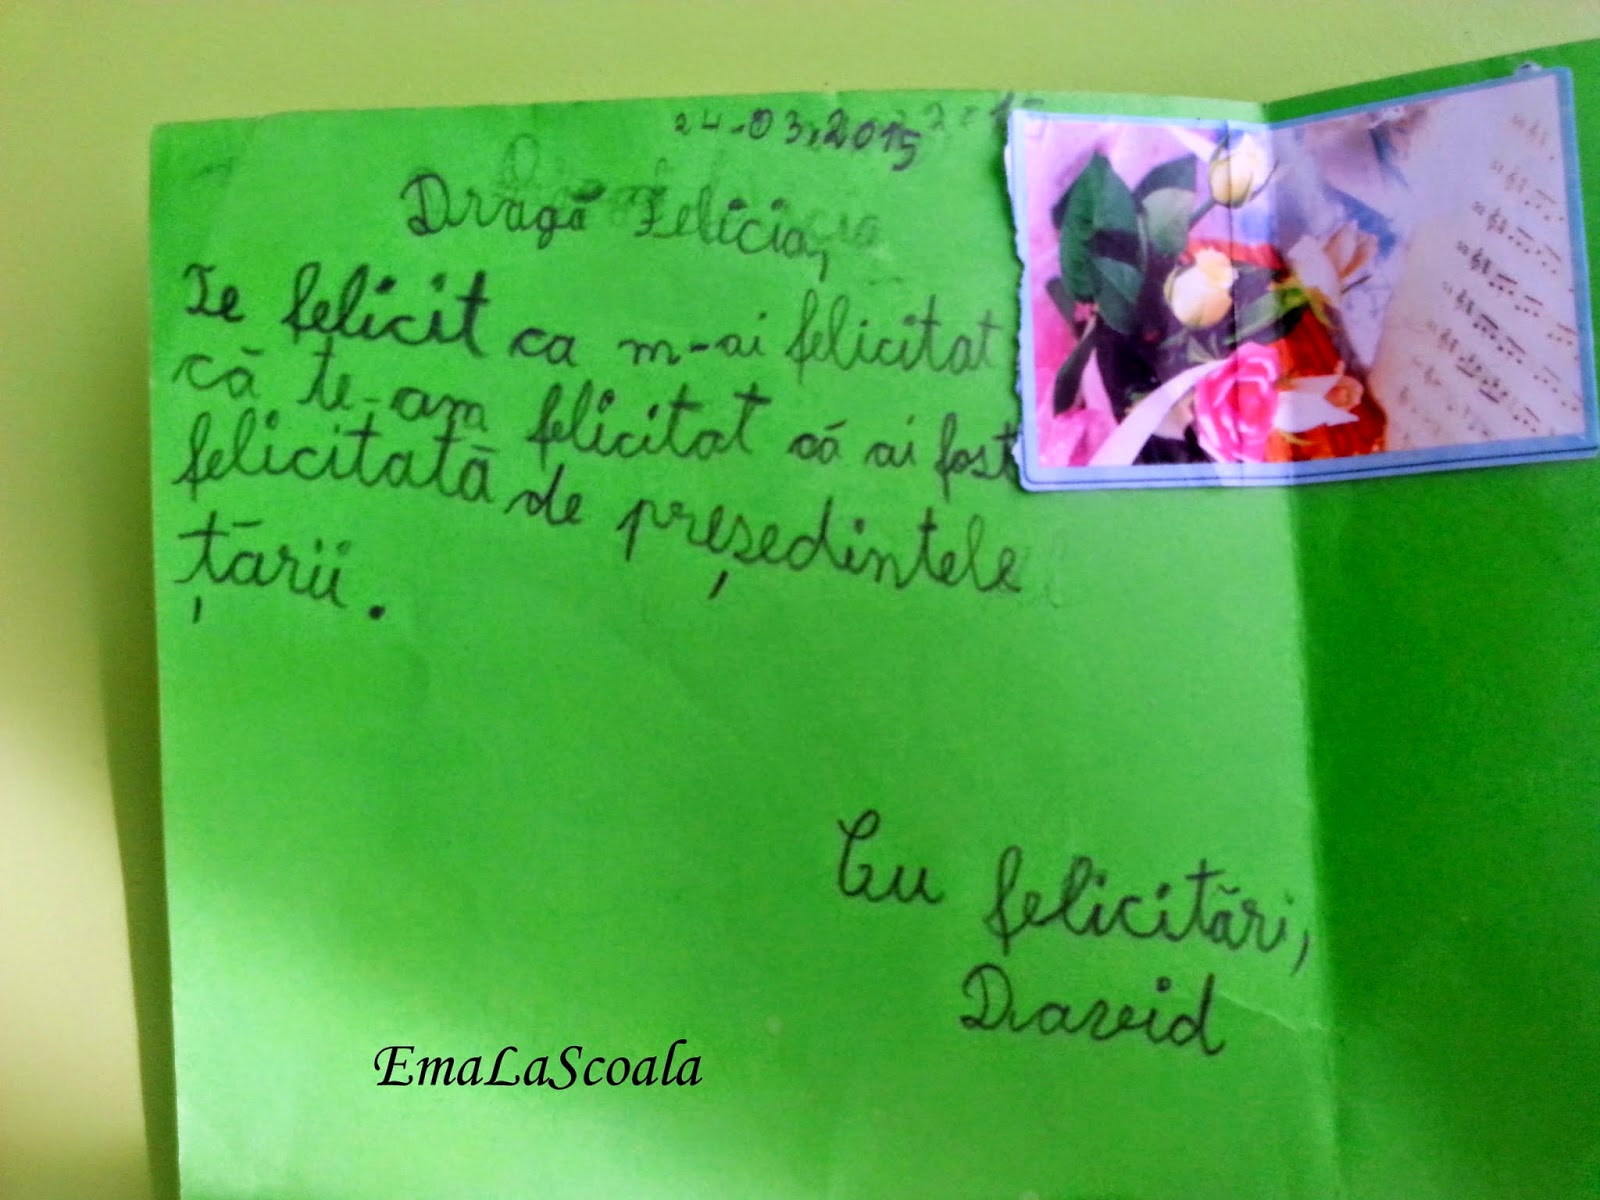 24.03.2015
Dragă Felicia,
Te felicit ca m-ai felicitat
că te-am felicitat că ai fost
felicitată de președintele
țării.
Cu felicitări,
David
EmaLaScoala